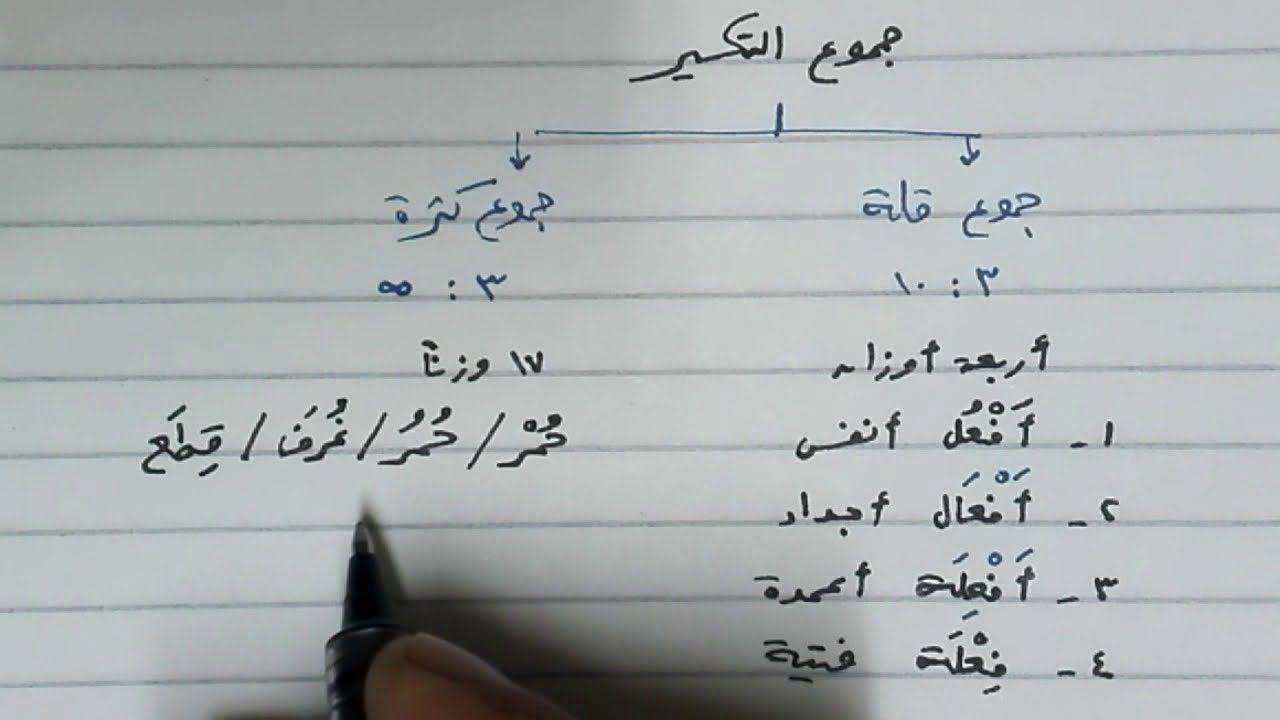 جموع التكسير
جموع قلة
جموع كثرة
٣ : ١٠
٣ : ∞
أربعة أوزان
١٧ وزنًا
١ - أَفْعُل أنفس
حُمْر / حُمُر / غُرَف / قِطَع
٢ - أَفْعَال أجداد
٣ - أَفْعِلَة أعمدة
٤ - فِعْلَة فتية